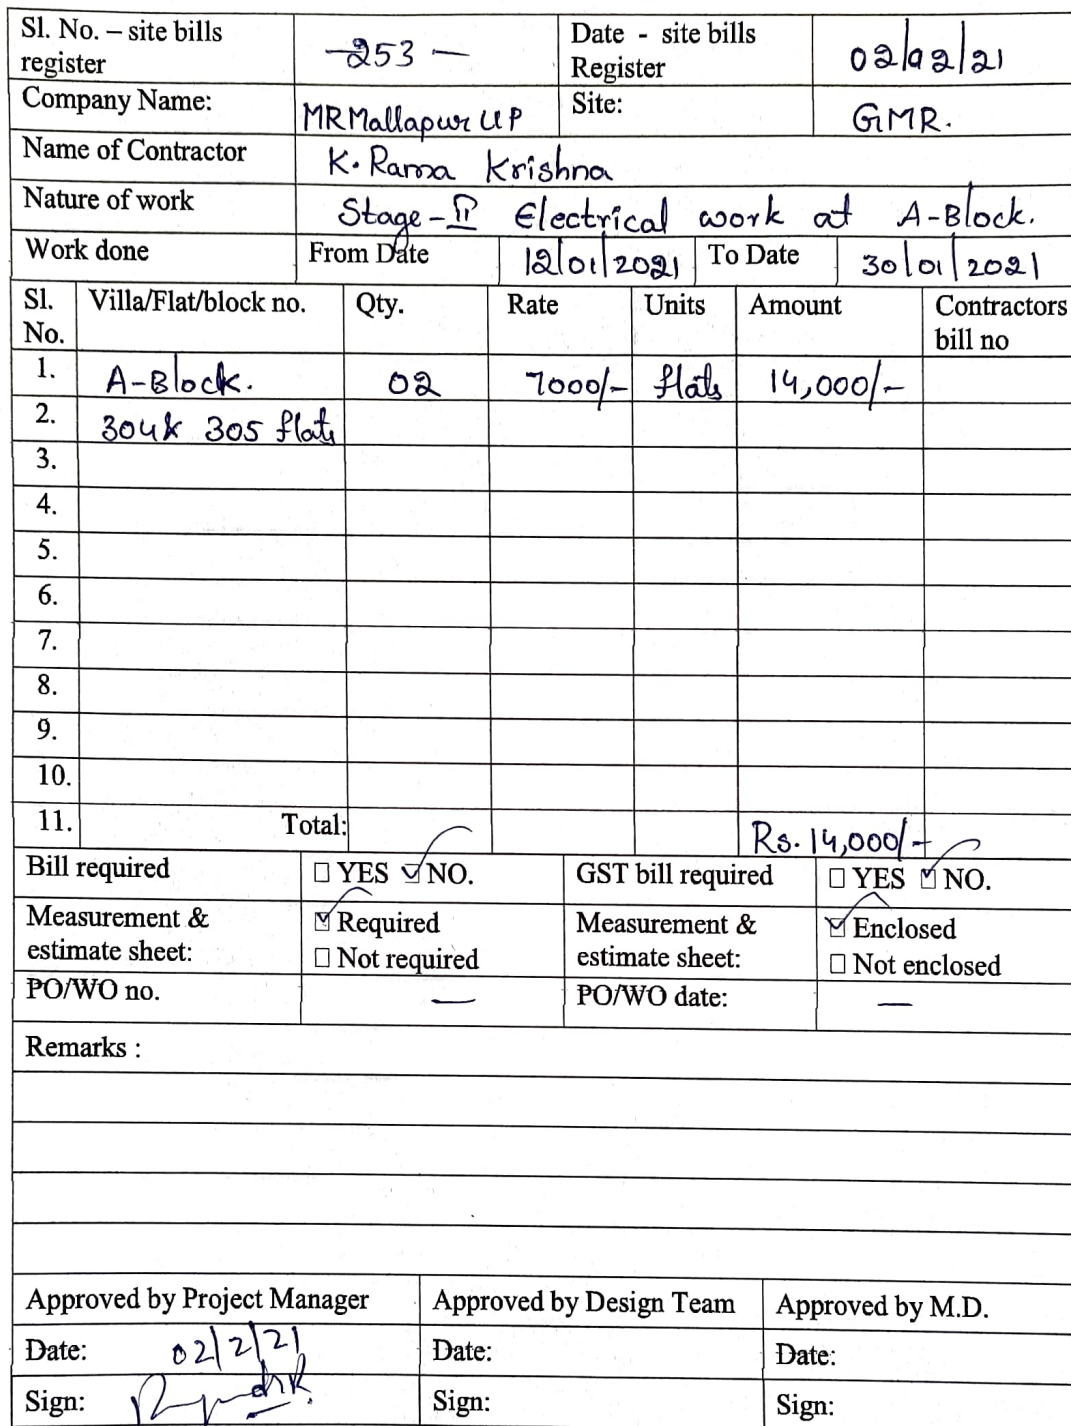 Sl. No. – site bills register -253- Date - site bills Register 02/02/21
Company Name: MRMallapur LLP Site: GMR.
Name of Contractor K. Rama Krishna
Nature of work Stage-II Electrical work at A-Block.
Work done From Date 12/01/2021 To Date 30/01/2021
Sl. No. Villa/Flat/block no. Qty. Rate Units Amount Contractors bill no
1. A-Block. 02 7000/- flats 14,000/-
2. 304 & 305 flats
3.
4.
5.
6.
7.
8.
9.
10.
11. Total: Rs. 14,000/-
Bill required ☐ YES ☑ NO. GST bill required ☐ YES ☑ NO.
Measurement & estimate sheet: ☑ Required ☐ Not required Measurement & estimate sheet: ☑ Enclosed ☐ Not enclosed
PO/WO no. — PO/WO date: —
Remarks :
Approved by Project Manager Approved by Design Team Approved by M.D.
Date: 02/2/21 Date: Date:
Sign: Sign: Sign: